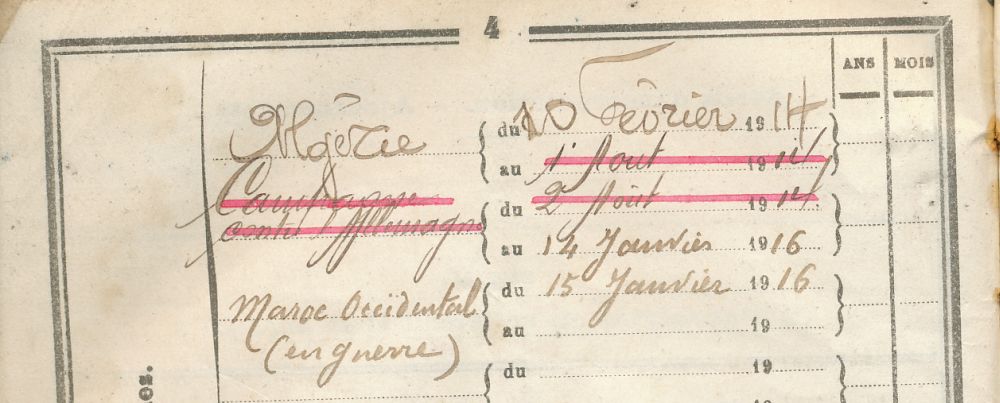 4
ANS MOIS
Algérie du 10 Février 1914
au 1 Aout 1914
Campagne du 2 Août 1914
contre Allemagne au 14 Janvier 1916
Maroc Occidental du 15 Janvier 1916
au 19
(en guerre)
du 19